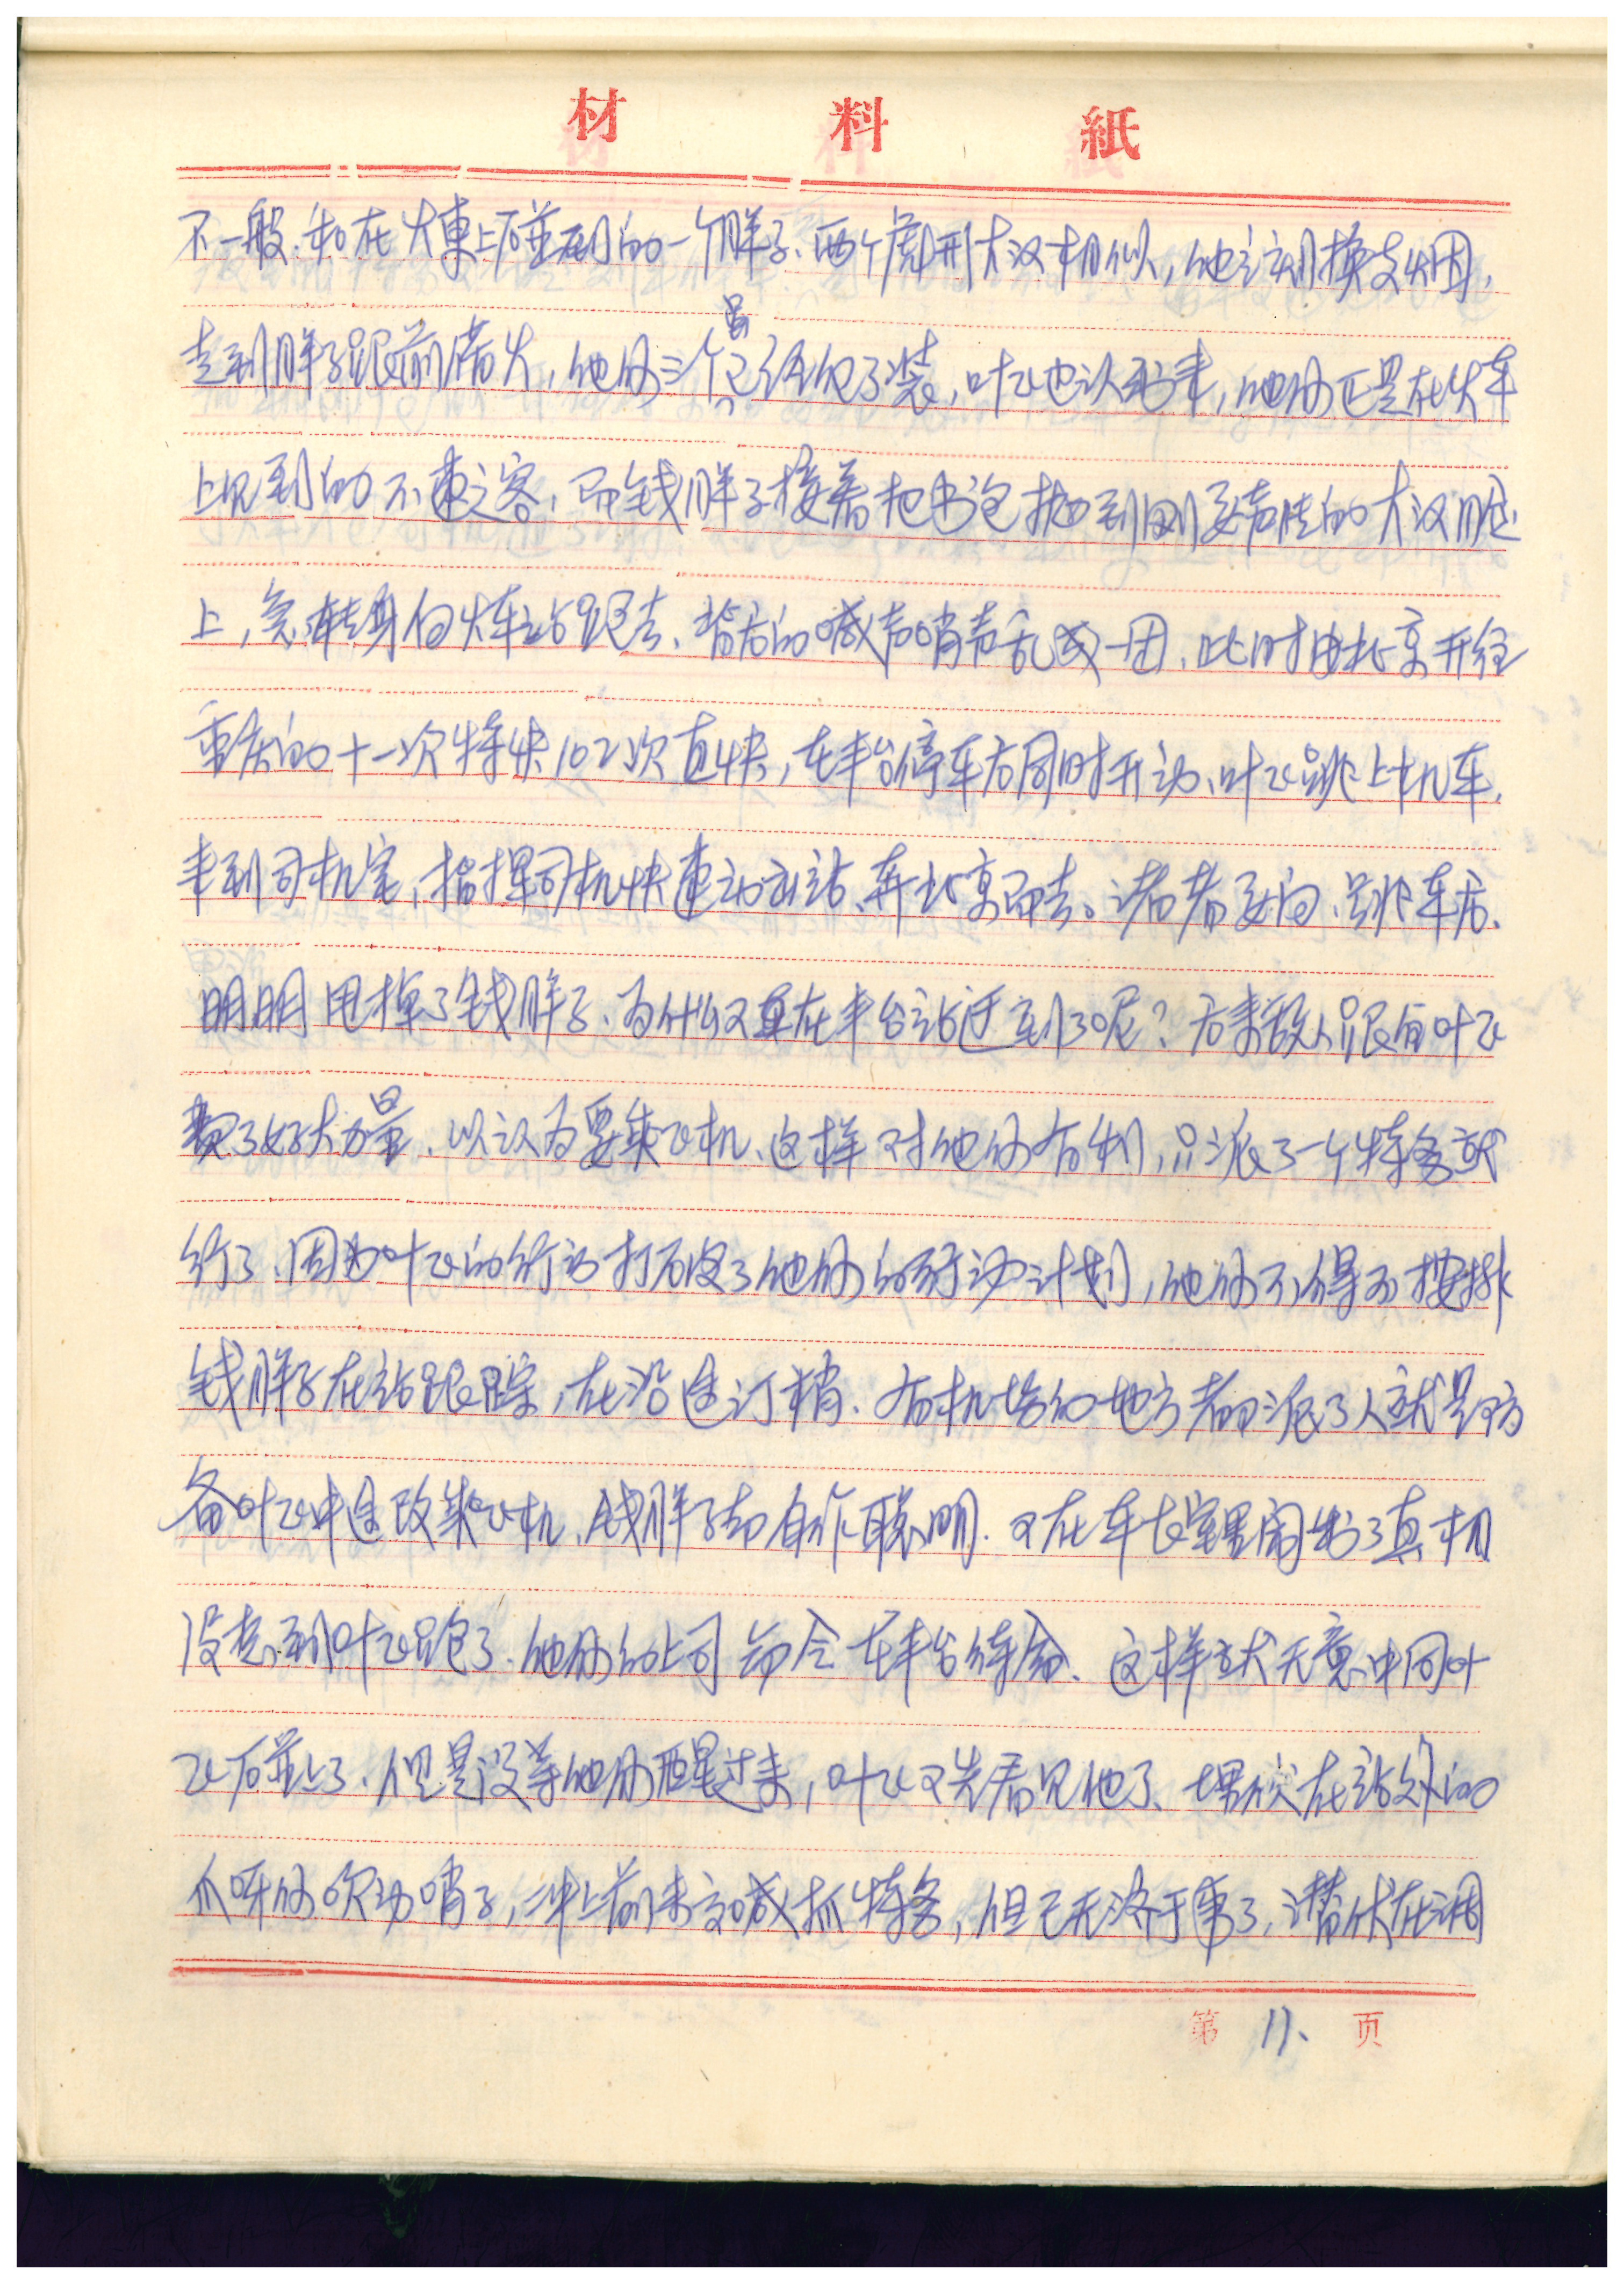 材料紙
不一般.和在火車上碰到的一个胖子.两个彪形大汉相似,他立刻换支烟,
走到胖子跟前借火,他们三个虽已经化了装,叶飞也认出来,他们正是在火车
上见到的不速之客,而钱胖子接着把书包抛到刚要的大汉脸
上,急转身向火车站跑去、背后的喊声哨声乱成一团、此时由北京开往
重庆的十一次特快102次直快,在丰台停车后同时开动、叶飞跳上机车,
来到司机室,指挥司机快速动出站、奔北京而去。读者要问、跳车后、
明明甩掉了钱胖子、为什么又在丰台站过到了呢?后来敌人跟宙叶飞
费了好大力量、以认为要乘飞机、这样对他们有利,只派了一个特务就
行了、因为叶飞的行动打破了他们的行动计划,他们不得不按排
钱胖子在站跟踪,在沿途订梢.有机场的地方都派了人就是防
备叶飞中途改乘飞机、钱胖子却自作聪明.又在车长室里闹出了真相
没想到叶飞跑了.他们的上司命令在丰台待命、这样就无意中同叶
飞碰上了.但是没等他们醒过来,叶飞又先看见他了、埋伏在站外的
爪呀们吹动哨子,冲上前来高喊抓特务,但已无济于事了,潜伏在
第 11、页